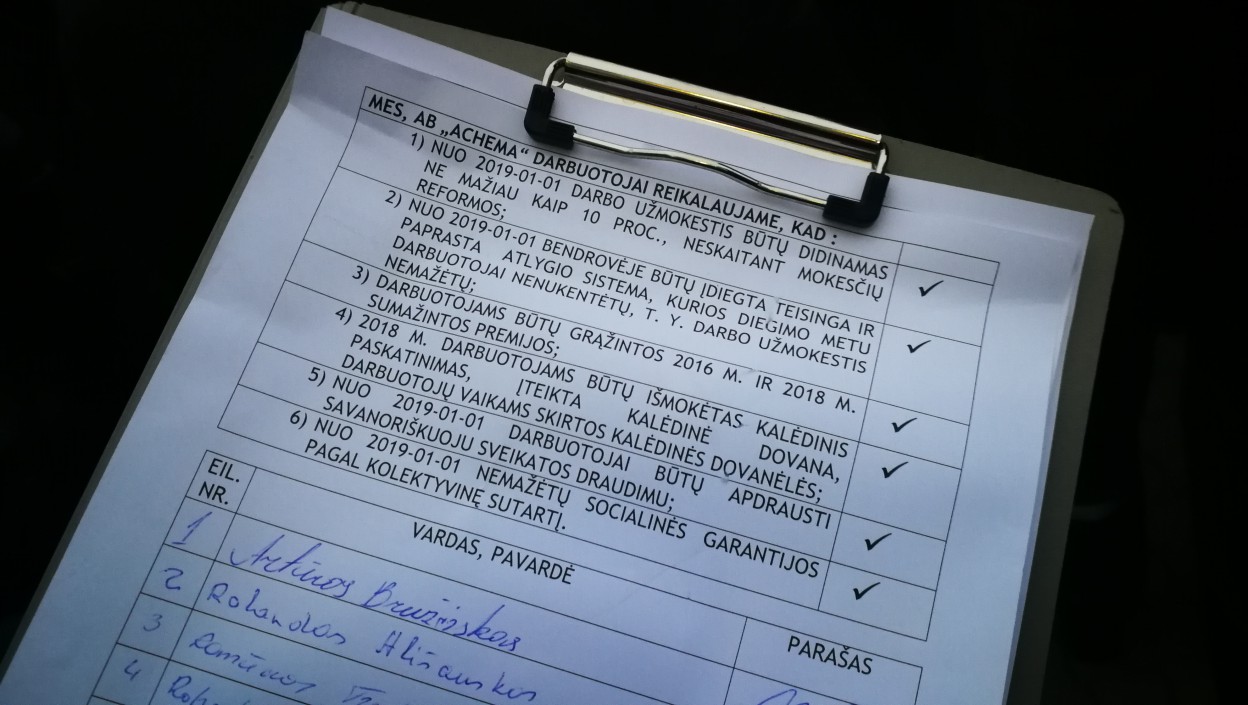 MES, AB „ACHEMA“ DARBUOTOJAI REIKALAUJAME, KAD :
1) NUO 2019-01-01 DARBO UŽMOKESTIS BŪTŲ DIDINAMAS
NE MAŽIAU KAIP 10 PROC., NESKAITANT MOKESČIŲ
REFORMOS;
2) NUO 2019-01-01 BENDROVĖJE BŪTŲ ĮDIEGTA TEISINGA IR
PAPRASTA ATLYGIO SISTEMA, KURIOS DIEGIMO METU
DARBUOTOJAI NENUKENTĖTŲ, T. Y. DARBO UŽMOKESTIS
NEMAŽĖTŲ;
3) DARBUOTOJAMS BŪTŲ GRĄŽINTOS 2016 M. IR 2018 M.
SUMAŽINTOS PREMIJOS;
4) 2018 M. DARBUOTOJAMS BŪTŲ IŠMOKĖTAS KALĖDINIS
PASKATINIMAS, ĮTEIKTA KALĖDINĖ DOVANA,
DARBUOTOJŲ VAIKAMS SKIRTOS KALĖDINĖS DOVANĖLĖS;
5) NUO 2019-01-01 DARBUOTOJAI BŪTŲ APDRAUSTI
SAVANORIŠKUOJU SVEIKATOS DRAUDIMU;
6) NUO 2019-01-01 NEMAŽĖTŲ SOCIALINĖS GARANTIJOS
PAGAL KOLEKTYVINĘ SUTARTĮ.
EIL. NR.
VARDAS, PAVARDĖ
PARAŠAS
1 Artūras
2 Rolandas Ališauskas
3 Ramūnas
4